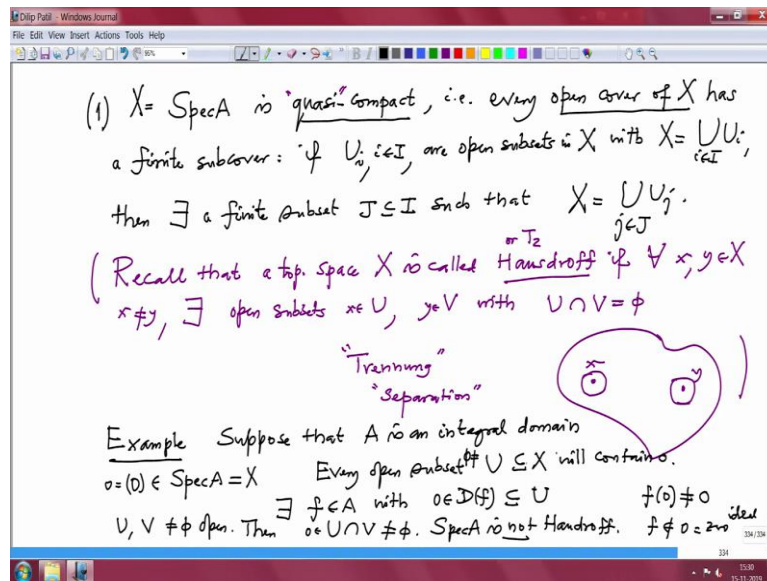 Dilip Patil - Windows Journal
File Edit View Insert Actions Tools Help
(1) X = Spec A is "quasi-"compact, i.e. every open cover of X has
a finite subcover: if U_i, i∈I, are open subsets in X with X = ⋃_{i∈I} U_i,
then ∃ a finite subset J ⊆ I such that X = ⋃_{j∈J} U_j.
(Recall that a top. space X is called Hausdroff or T₂ if ∀ x, y ∈ X
x ≠ y, ∃ open subsets x∈U, y∈V with U ∩ V = ϕ
x y )
"Trennung"
"Separation"
Example Suppose that A is an integral domain
0 = (0) ∈ Spec A = X Every open subset ϕ≠ U ⊆ X will contain 0.
∃ f∈A with 0∈D(f) ⊆ U f(0) ≠ 0
U, V ≠ ϕ open. Then 0∈ U∩V ≠ ϕ. Spec A is not Hausdroff. f ∉ 0 = zero ideal
334/334
334
15:30
15-11-2019